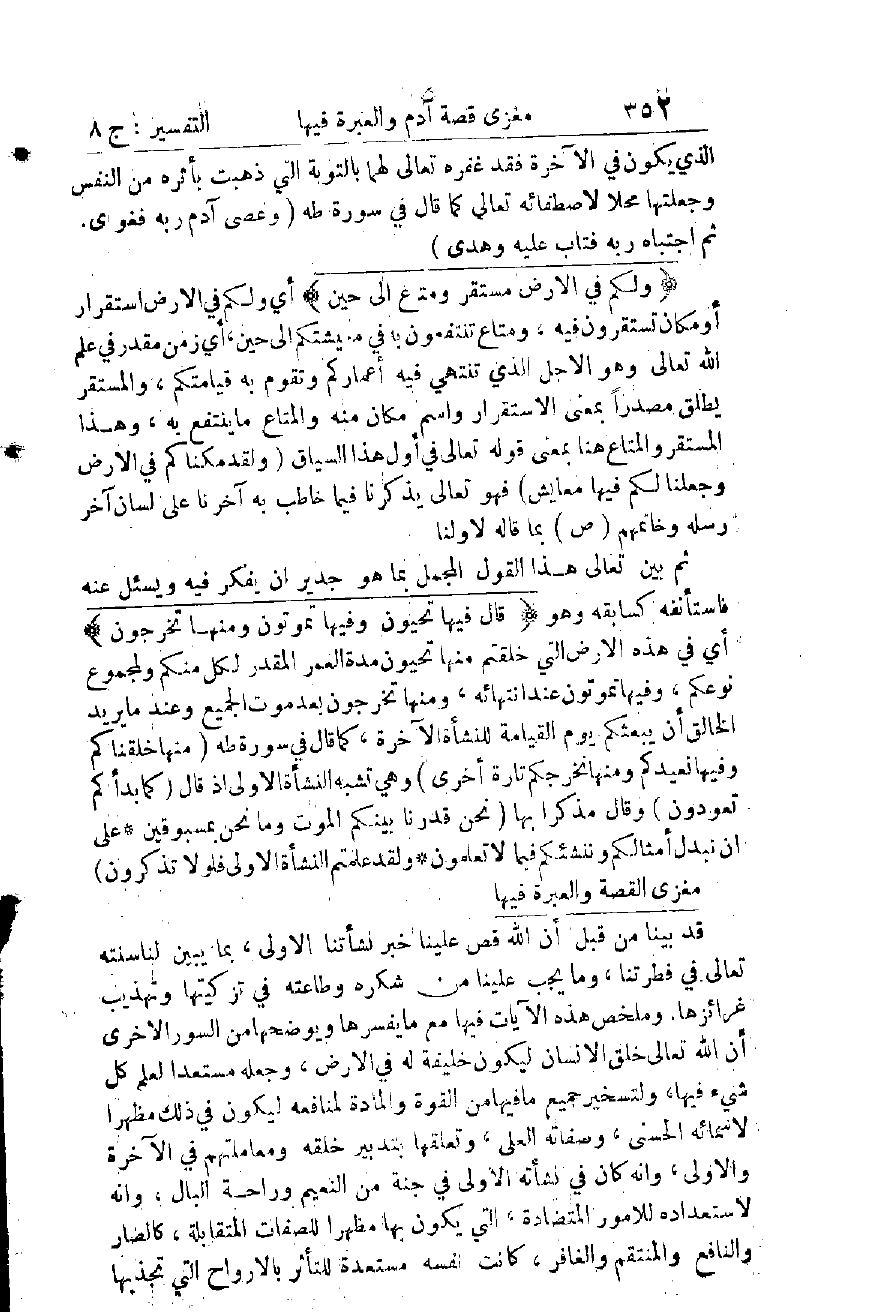 ٣٥٢ مغزى قصة آدم والعبرة فيها التفسير : ج ٨
الذي يكون في الآخرة فقد غفره تعالى لهما بالتوبة التي ذهبت بأثره من النفس
وجعلتها محلا لاصطفائه تعالى كما قال في سورة طه ( وعصى آدم ربه فغوى.
ثم اجتباه ربه فتاب عليه وهدى )
﴿ ولكم في الارض مستقر ومتع الى حين ﴾ أي ولكم في الارض استقرار
أو مكان تستقرون فيه ، ومتاع تنتفعون به في معيشتكم الى حين، أي زمن مقدر في علم
الله تعالى وهو الاجل الذي تنتهي فيه أعماركم وتقوم به قيامتكم ، والمستقر
يطلق مصدراً بمعنى الاستقرار واسم مكان منه والمتاع ماينتفع به ، وهـذا
المستقر والمتاع هنا بمعنى قوله تعالى في أول هذا السياق ( ولقد مكناكم في الارض
وجعلنا لكم فيها معايش) فهو تعالى يذكرنا فيما خاطب به آخرنا على لسان آخر
رسله وخاتمهم ( ص ) بما قاله لاولنا
ثم بين تعالى هـذا القول المجمل بما هو جدير ان يفكر فيه ويسئل عنه
فاستأنفه كسابقه وهو ﴿ قال فيها تحيون وفيها تموتون ومنهـا تخرجون ﴾
أي في هذه الارض التي خلقتم منها تحيون مدة العمر المقدر لكل منكم ولمجموع
نوعكم ، وفيها تموتون عند انتهائه ، ومنها تخرجون بعد موت الجميع وعند مايريد
الخالق أن يبعثكم يوم القيامة للنشأة الآخرة ، كما قال في سورة طه ( منها خلقناكم
وفيها نعيدكم ومنها نخرجكم تارة أخرى ) وهي تشبه النشأة الاولى اذ قال ( كما بدأكم
تعودون ) وقال مذكرا بها ( نحن قدرنا بينكم الموت وما نحن بمسبوقين * على
ان نبدل أمثالكم وننشئكم فيما لا تعلمون * ولقد علمتم النشأة الاولى فلولا تذكرون)
مغزى القصة والعبرة فيها
قد بينا من قبل أن الله قص علينا خبر نشأتنا الاولى ، بما يبين لنا سنته
تعالى في فطرتنا ، وما يجب علينا من شكره وطاعته في تزكيتها وتهذيب
غرائزها. وملخص هذه الآيات فيها مع مايفسرها ويوضحها من السور الاخرى
أن الله تعالى خلق الانسان ليكون خليفة له في الارض ، وجعله مستعدا لعلم كل
شيء فيها، ولتسخير جميع مافيها من القوة والمادة لمنافعه ليكون في ذلك مظهرا
لاسمائه الحسنى ، وصفاته العلى ، وتعلقها بتدبير خلقه ومعاملتهم في الآخرة
والاولى ، وانه كان في نشأته الاولى في جنة من النعيم وراحـة البال ، وانه
لاستعداده للامور المتضادة ، التي يكون بها مظهرا للصفات المتقابلة ، كالضار
والنافع والمنتقم والغافر ، كانت نفسه مستعدة للتأثر بالارواح التي تجذبها